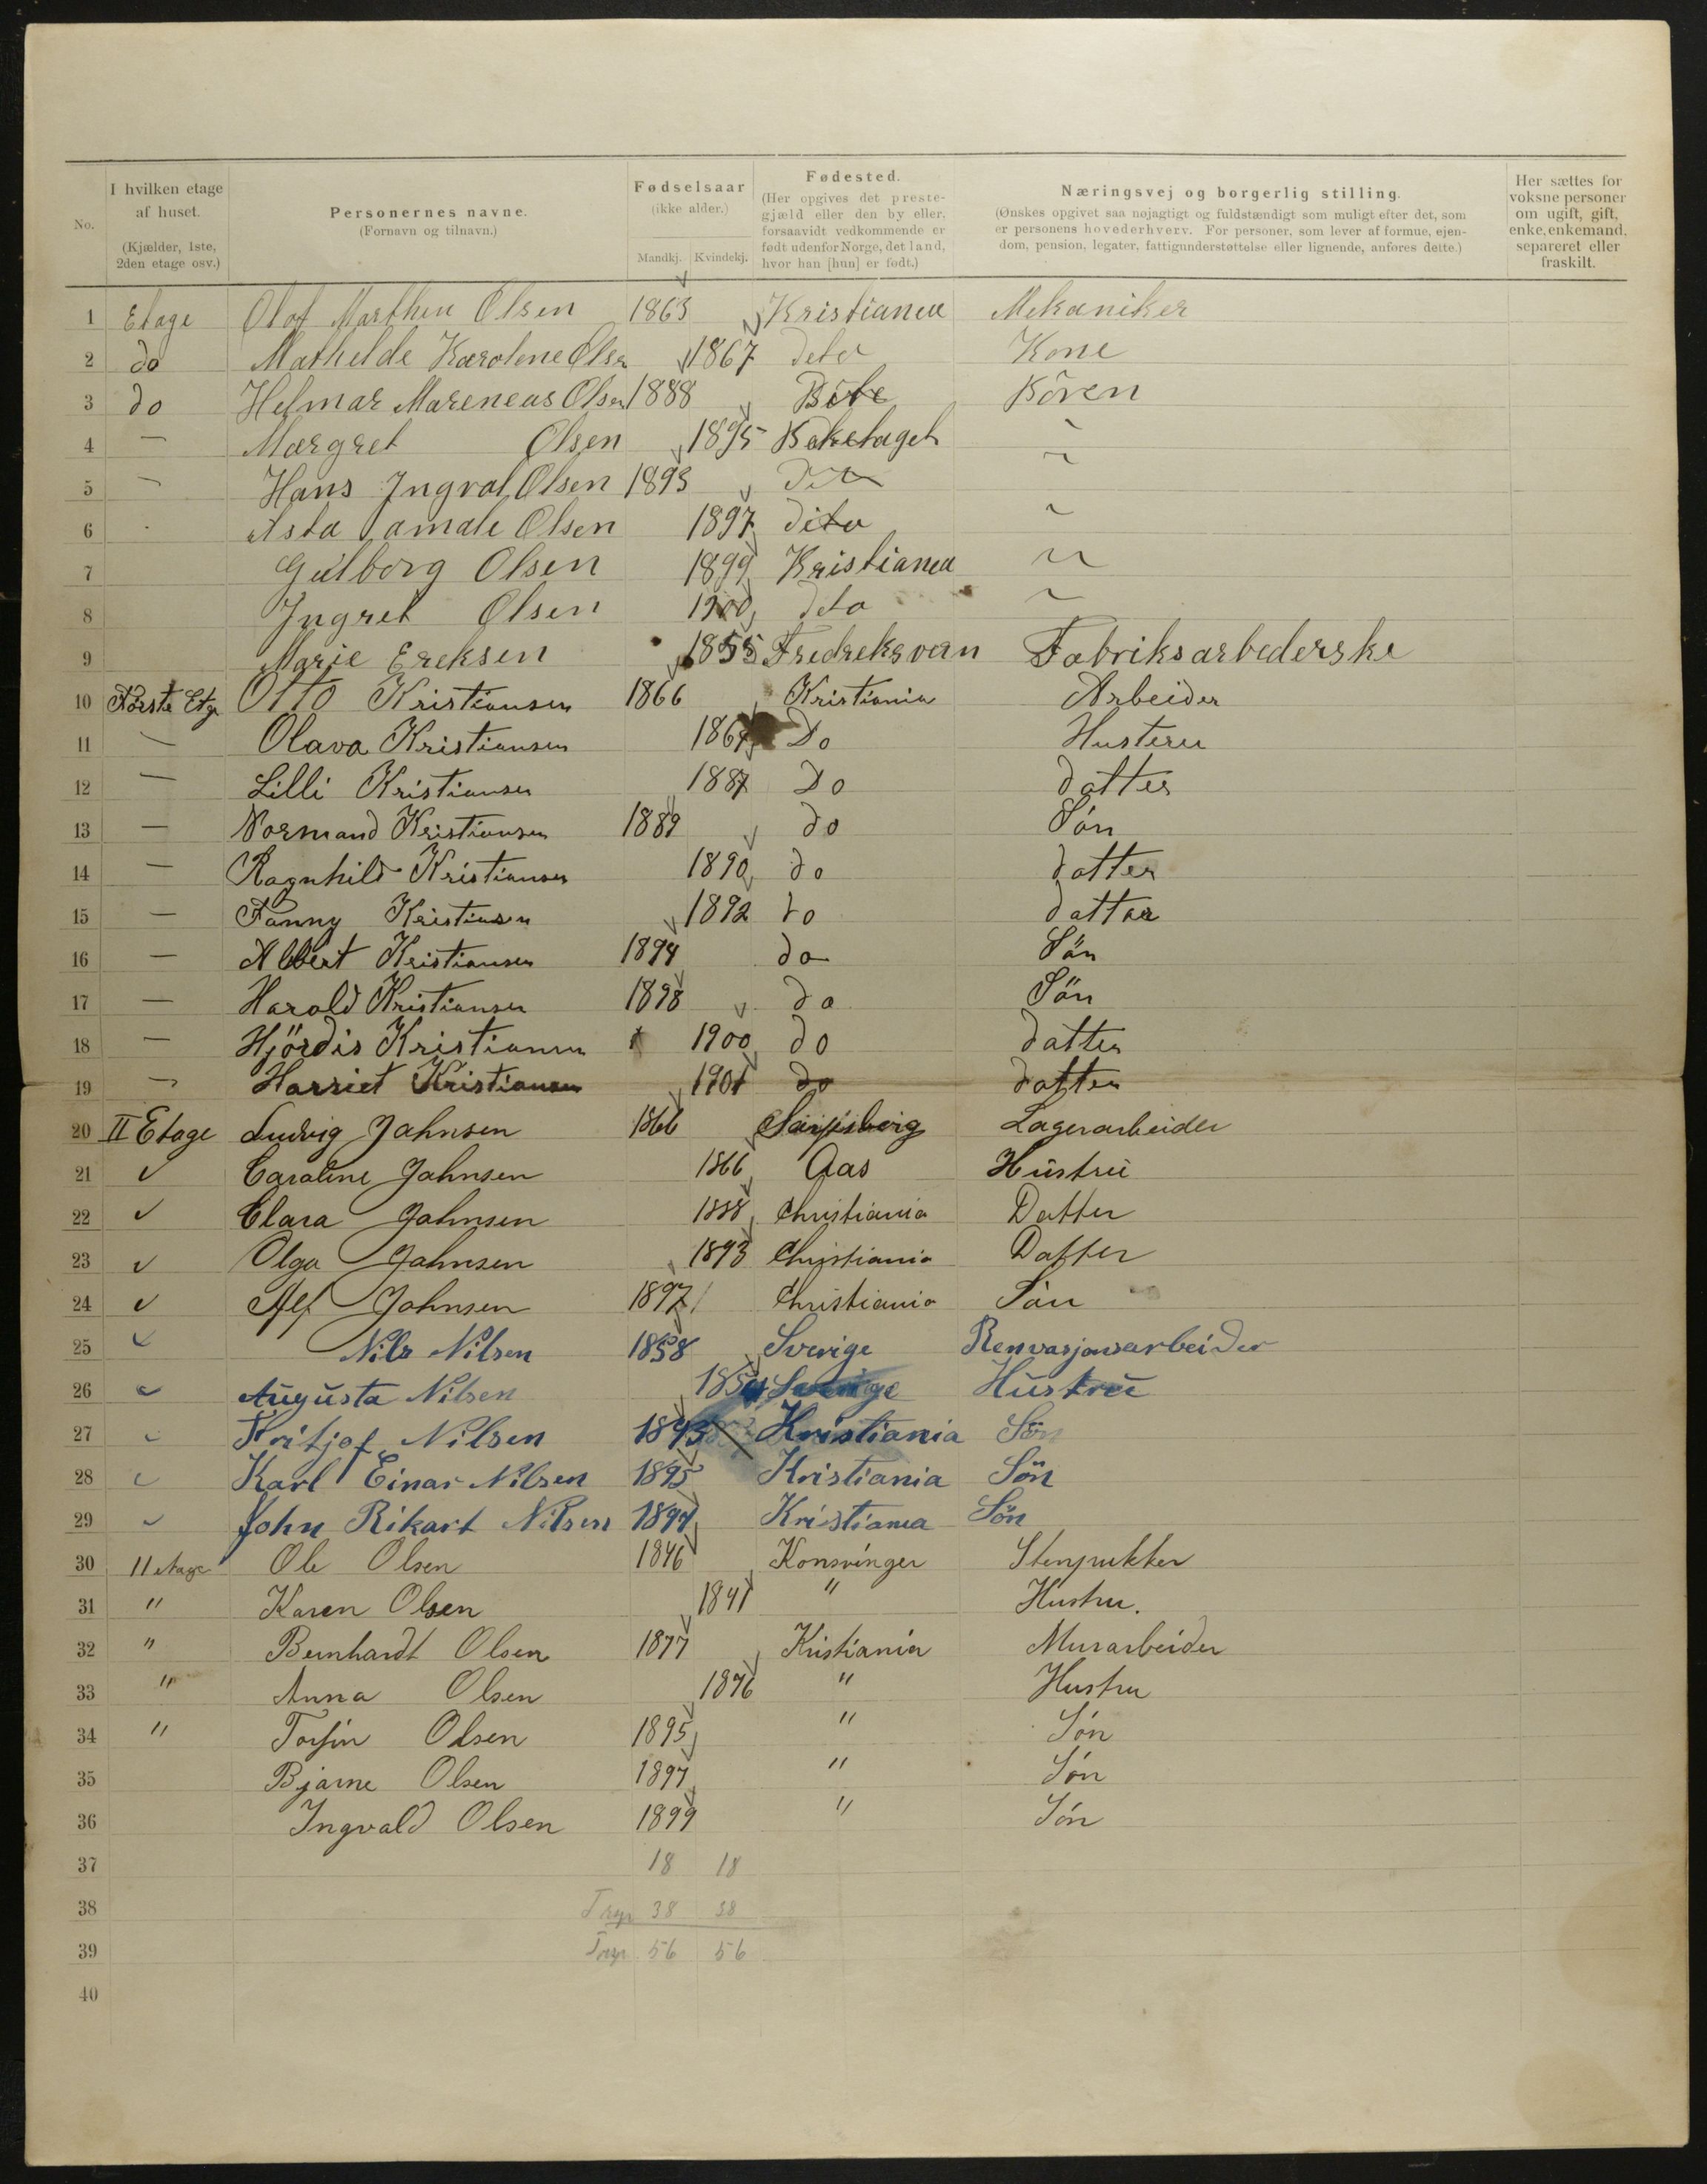 No.
I hvilken etage af huset.
(Kjælder, 1ste, 2den etage osv.)
Personernes navne.
(Fornavn og tilnavn.)
Fødselsaar
(ikke alder.)
Mandkj. Kvindekj.
Fødested.
(Her opgives det prestegjæld eller den by eller, forsaavidt vedkommende er født udenfor Norge, det land, hvor han [hun] er født.)
Næringsvej og borgerlig stilling.
(Ønskes opgivet saa nøjagtigt og fuldstændigt som muligt efter det, som er personens hovederhverv. For personer, som lever af formue, ejendom, pension, legater, fattigunderstøttelse eller lignende, anføres dette.)
Her sættes for voksne personer om ugift, gift, enke, enkemand, separeret eller fraskilt.
1 Etage Olaf Marthen Olsen 1863 Kristianea Mekaniker
2 do Mathelde Karolene Olsen 1867 deto Kone
3 do Helmar Mareneus Olsen 1888 Kören
4 — Margret Olsen 1895
5 — Hans Ingval Olsen 1893
6 Asta amale Olsen 1897 dito
7 Gulborg Olsen 1899 Kristianea
8 Ingret Olsen 1900 deto
9 Marie Ereksen 1855 Fredreksvern Fabriksarbederske
10 Første Etg Otto Kristiansen 1866 Kristiania Arbeider
11 — Olava Kristiansen 1867 Do Husteru
12 — Lilli Kristiansen 1887 Do datter
13 — Normand Kristiansen 1889 do Sön
14 — Ragnhild Kristiansen 1890 do datter
15 — Fanny Kristiansen 1892 do datter
16 — Albert Kristiansen 1894 do Sön
17 — Harald Kristiansen 1898 do Sön
18 — Hjördis Kristiansen 1900 do datter
19 — Harriet Kristiansen 1901 do datter
20 II Etage Ludvig Johnsen 1866 Sarpsborg Lagerarbeider
21 Caroline Johnsen 1866 Aas Hustru
22 Clara Johnsen 1888 Christiania Datter
23 Olga Johnsen 1893 Christiania Datter
24 Alf Johnsen 1897 Christiania Sön
25 Nils Nilsen 1858 Sverige Renvasjonsarbeider
26 Augusta Nilsen Sverige Hustru
27 Fritjof Nilsen 1893 Kristiania Sön
28 Karl Einar Nilsen 1895 Kristiania Sön
29 John Rikart Nilsen 1897 Kristiania Sön
30 II etage Ole Olsen 1846 Konsvinger Stenpukker
31 " Karen Olsen 1841 " Hustru.
32 " Bernhardt Olsen 1877 Kristiania Murarbeider
33 " Anna Olsen 1876 " Hustru
34 " Torfin Olsen 1895 " Sön
35 Bjarne Olsen 1897 " Sön
36 Ingvald Olsen 1899 " Sön
37 18 18
38 38 38
39 56 56
40